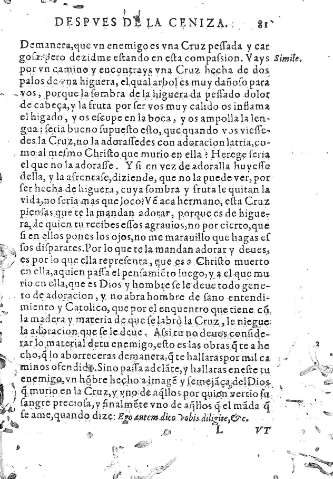 DESPVES DE LA CENIZA. 81
Demanera, que vn enemigo es vna Cruz pessada y car
gosa: pero dezidme estando en esta compassion. Vays Simile.
por vn camino y encontrays vna Cruz hecha de dos
palos de vna higuera, el qual arbol es muy dañoso para
vos, porque la sombra de la higuera da pessado dolor
de cabeça, y la fruta por ser vos muy calido os inflama
el higado, y os escupe en la boca, y os ampolla la len-
gua: seria bueno supuesto esto, que quando vos viesse-
des la Cruz, no la adorassedes con adoracion latria, co-
mo al mesmo Christo que murio en ella? Herege seria
el que no la adorasse. Y si en vez de adoralla huyesse
della, y la afrentase, diziende, que no la puede ver, por
ser hecha de higuera, cuya sombra y fruta le quitan la
vida, no seria mas que loco? Vé aca hermano, esta Cruz
piensas que te la mandan adorar, porque es de higue-
ra, de quien tu recibes essos agrauios, no por cierto, que
si en ellos pones los ojos, no me marauillo que hagas es
sos disparates. Por lo que te la mandan adorar y deues,
es por lo que ella representa, que es a Christo muerto
en ella, aquien passa el pensamiéto luego, y a el que mu
rio en ella, que es Dios y hombre se le deue todo gene-
ro de adoracion, y no abra hombre de sano entendi-
miento y Catolico, que por el encuentro que tiene cō
la madera y materia de que se labrò la Cruz, le niegue
la adoracion que se le deue. Assi tu no deues conside-
rar lo material de tu enemigo, esto es las obras q̃ te a he
cho, q̃ lo aborreceras demanera, q̃ te hallaras por mil ca
minos ofendido. Sino passa adeláte, y hallaras en este tu
enemigo, vn hōbre hecho a imagē y semejāça del Dios
q̃ murio en la Cruz, y vno de aq̃llos por quien vertio su
sangre preciosa, y finalmēte vno de aq̃llos q̃ el māda q̃
se ame, quando dize: Ego autem dico vobis diligite, &c.
L VT